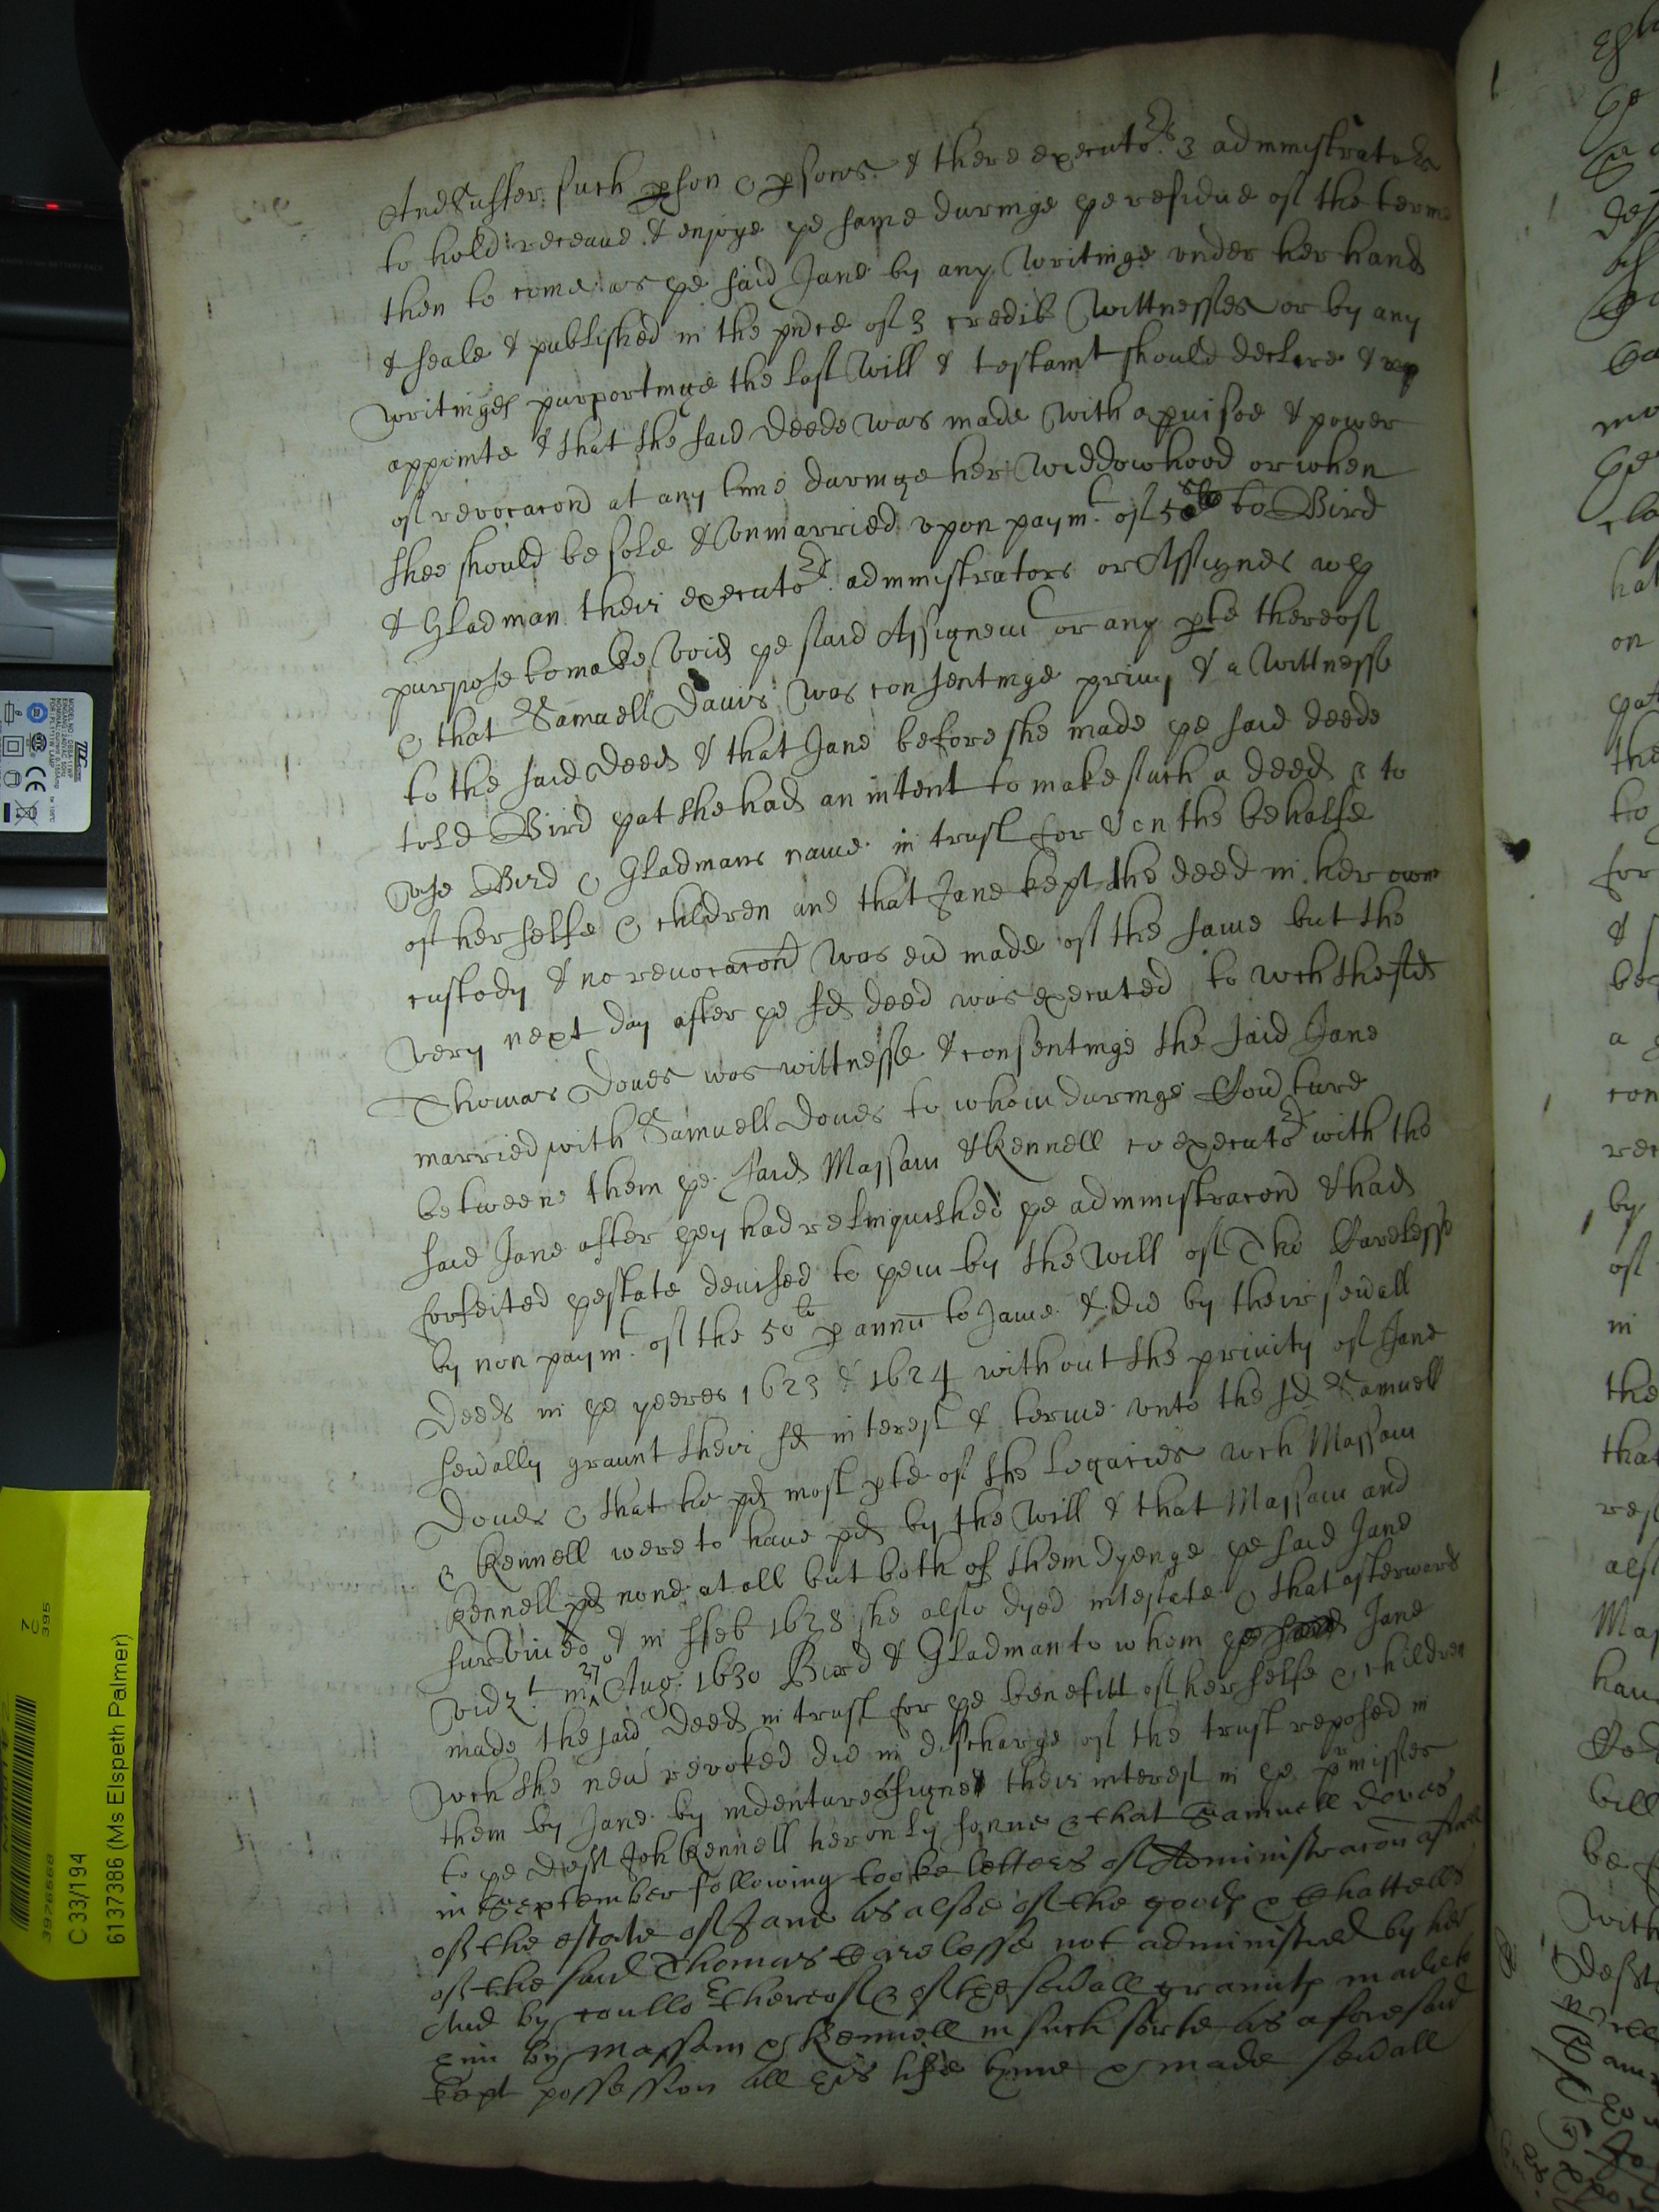 And suffer such pson & psons & there executors & administrators
to hold receaue & enjoye ye same duringe ye residue of the terme
then to come as ye said Jane by any writinge under her hand
& seale & published in the pñce of 3 credit Wittnesses or by any
writinges purportinge the last Will & testamt should declare &
appointe & that the said Deede was made with a puisoe & power
of revocacon at any time duringe her Widdowhood or when
shee should be sole & Vnmarried vpon paymt of 5s to Bird
& Gladman their executors administrators or Assignes
purpose to make Void ye said Assignem or any pte thereof
& that Samuell Dauis was consentinge priuy & a Wittnesse
to the said Deed & that Jane before she made ye said deede
told Bird yat she had an intent to make such a deed & to
Vse Bird & Gladmans name in trust for & on the behalfe
of her selfe & children and that Jane kept the deed in her own
custody & no reuocacon was eu made of the same but the
Very next day after ye sd deed was executed to wch the sd
Thomas Doues was wittnesse & consentinge the said Jane
married with Samuell Doues to whom duringe Couture
betweene them ye said Massam & Kennell co executors with the
said Jane after yey had relinquished ye administracon & had
forfeited yestate deuised to yem by the Will of Tho Carelesse
by non paymt of the 50li p annu to Jame & did by their seuall
Deeds in ye yeeres 1623 & 1624 without the priuity of Jane
seually graunt their sd interest & terme vnto the sd Samuell
Doues & that he pd most pte of the Legacies wch Massam
& Kennell were to haue pd by the Will & that Massam and
Kennell pd none at all but both of them dyenge ye said Jane
suruiued & in ffeb 1628 she also dyed intestate & that afterward
Vidzt in 27o Aug: 1630 Bird & Gladman to whom ye said Jane
made the said Deed in trust for ye benefitt of her selfe & children
Wch she neu revoked did in discharge of the trust reposed in
them by Jane by indenture assigned their interest in ye prmisses
to ye Deft Joh Kennell her only sonne & that Samuell Doues
in September following tooke letters of Administracon aswell
of the estate of Jane as alsoe of the goods & Chattells
of the said Thomas Carelesse not administred by her
And by coullor thereof & of ye seuall graunts made to
him by Massam & Kennell in such sorte as aforesaid
kept possession all his life tyme & made seuall
C 33/194
6137386 (Ms Elspeth Palmer)